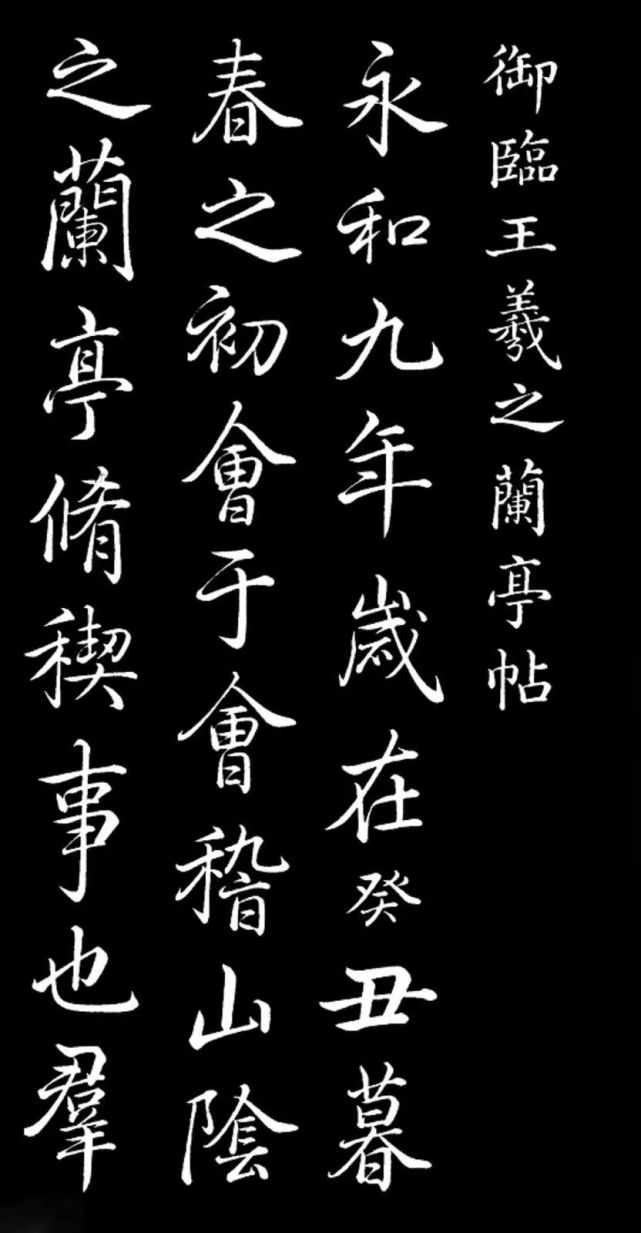 御臨王羲之蘭亭帖
永和九年歲在癸丑暮
春之初會于會稽山陰
之蘭亭脩稧事也羣